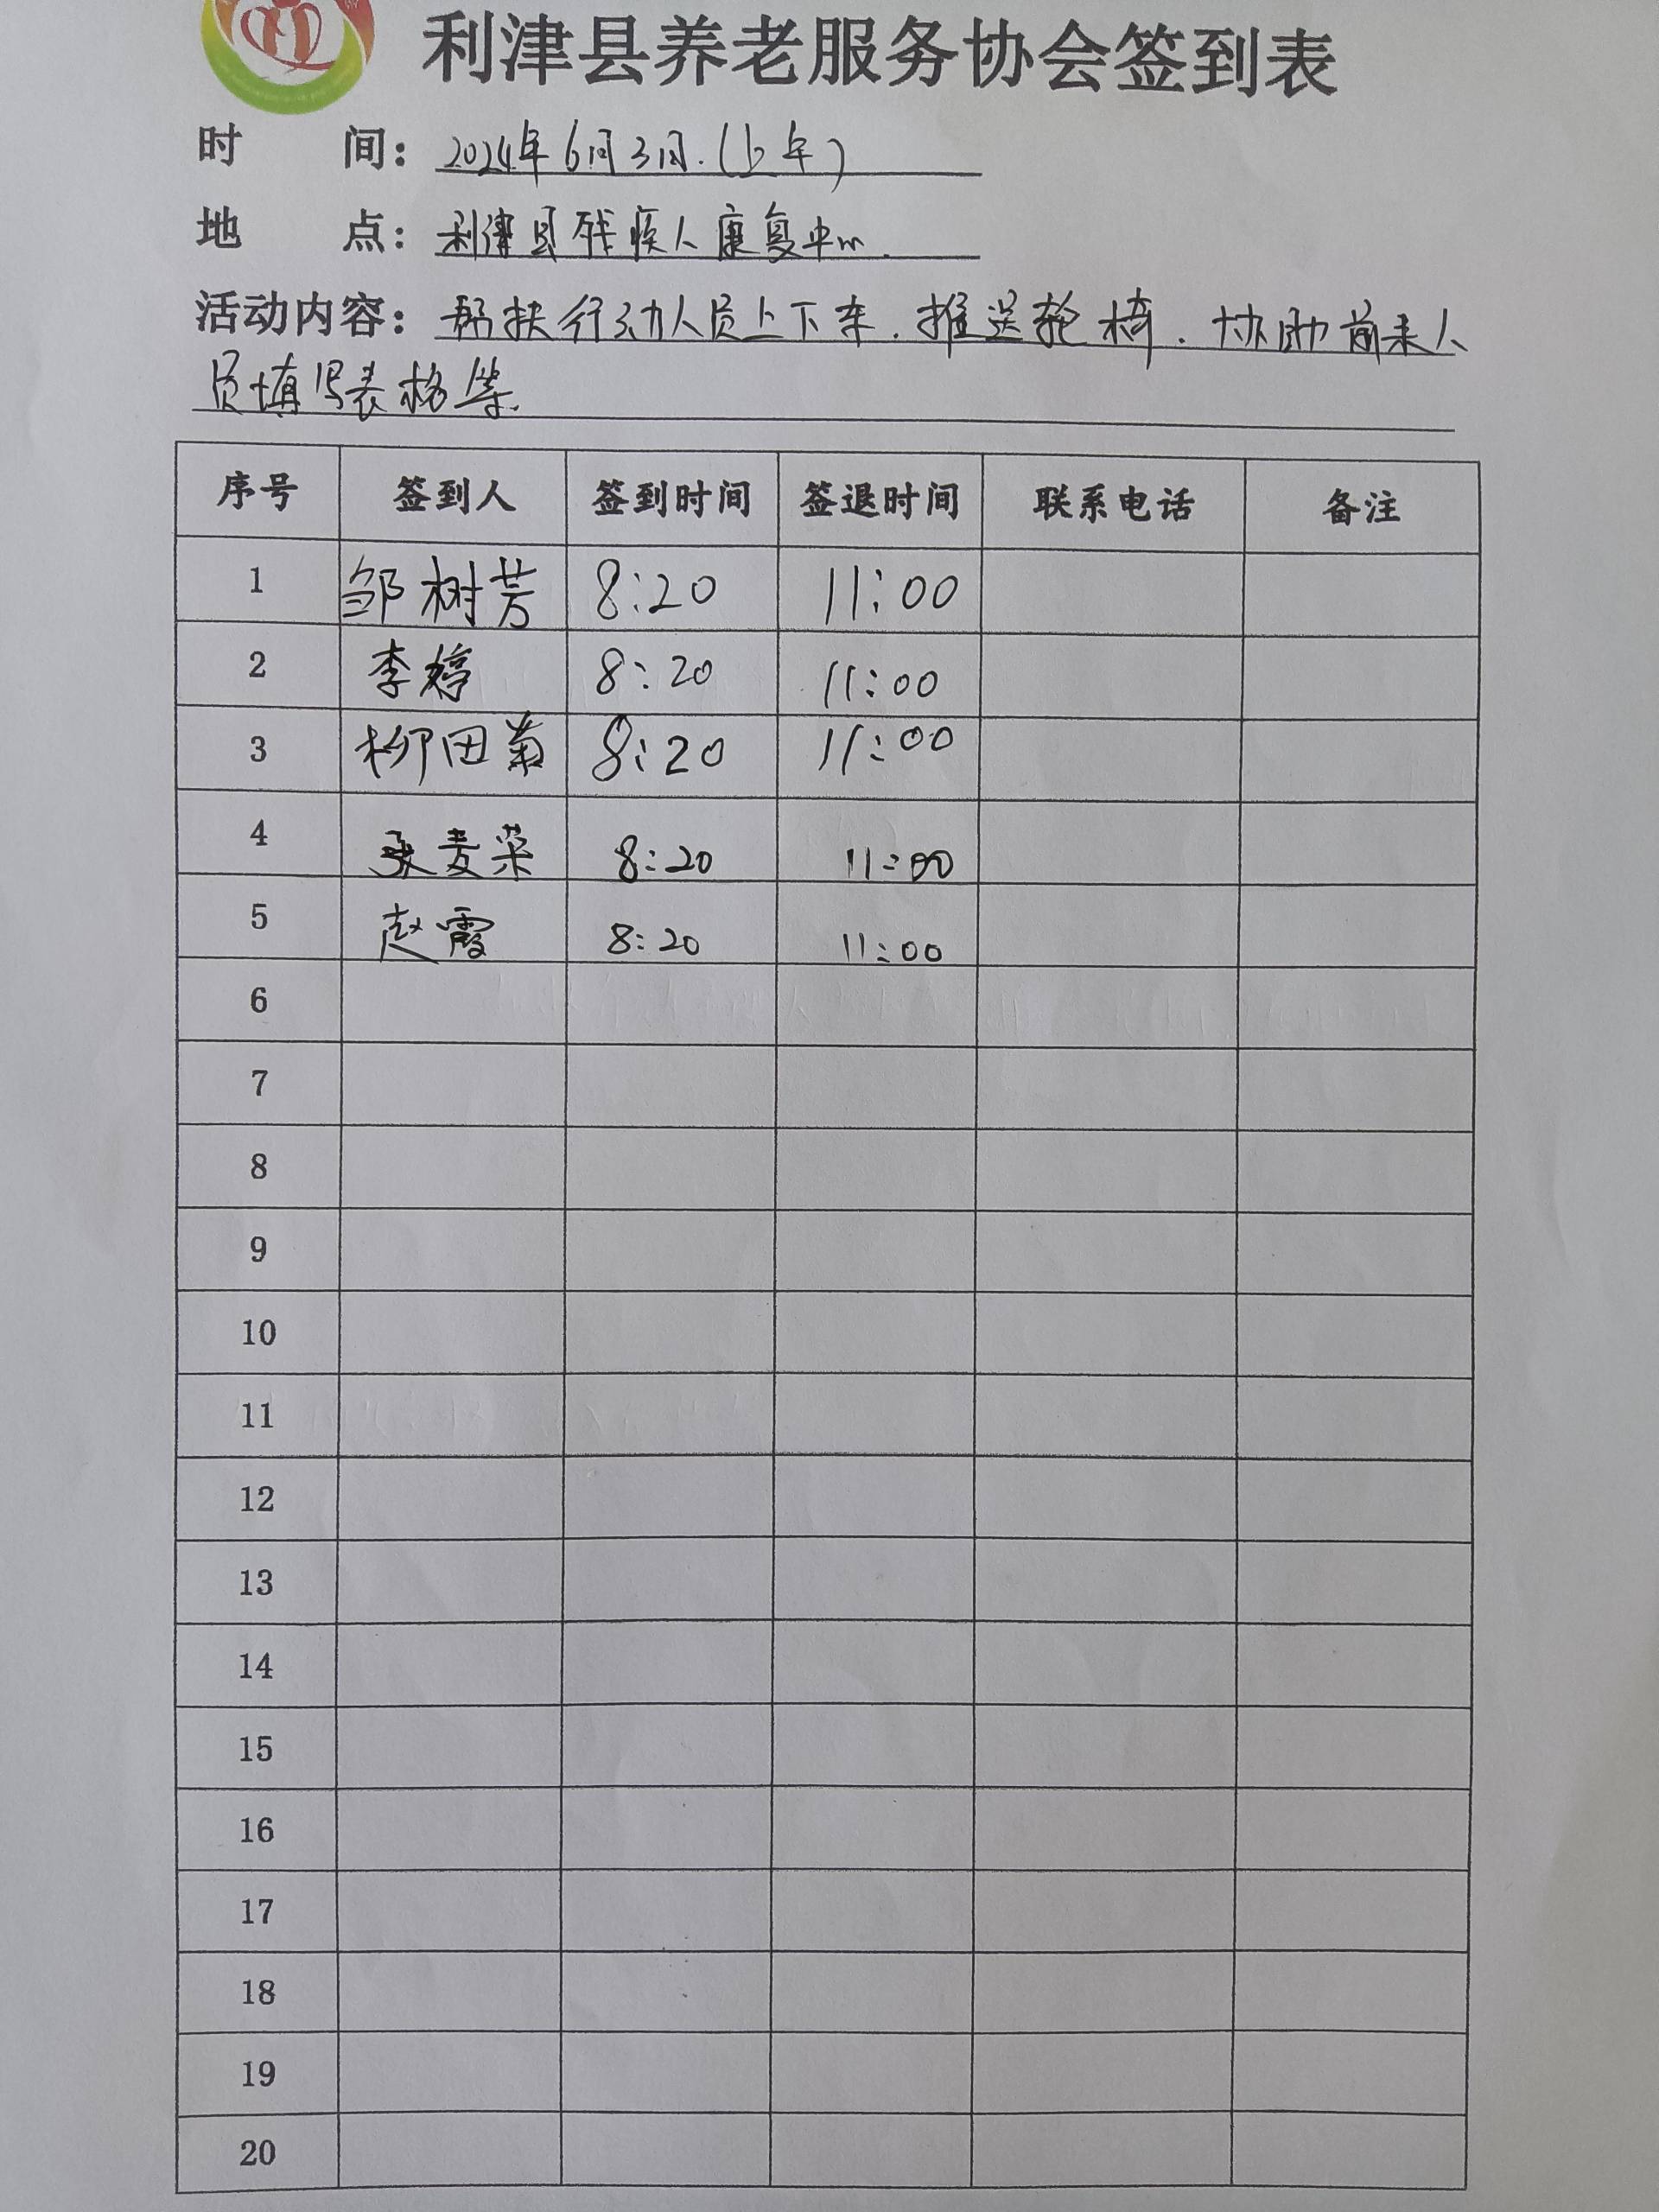 利津县养老服务协会签到表
时 间: 2024年6月3日.(上午)
地 点: 利津县残疾人康复中心.
活动内容: 帮扶行动人员上下车.推送轮椅.协助前来人
员填写表格等.
序号 签到人 签到时间 签退时间 联系电话 备注
1 邹树芳 8:20 11:00
2 李婷 8:20 11:00
3 柳田菊 8:20 11:00
4 张麦荣 8:20 11:00
5 赵霞 8:20 11:00
6
7
8
9
10
11
12
13
14
15
16
17
18
19
20